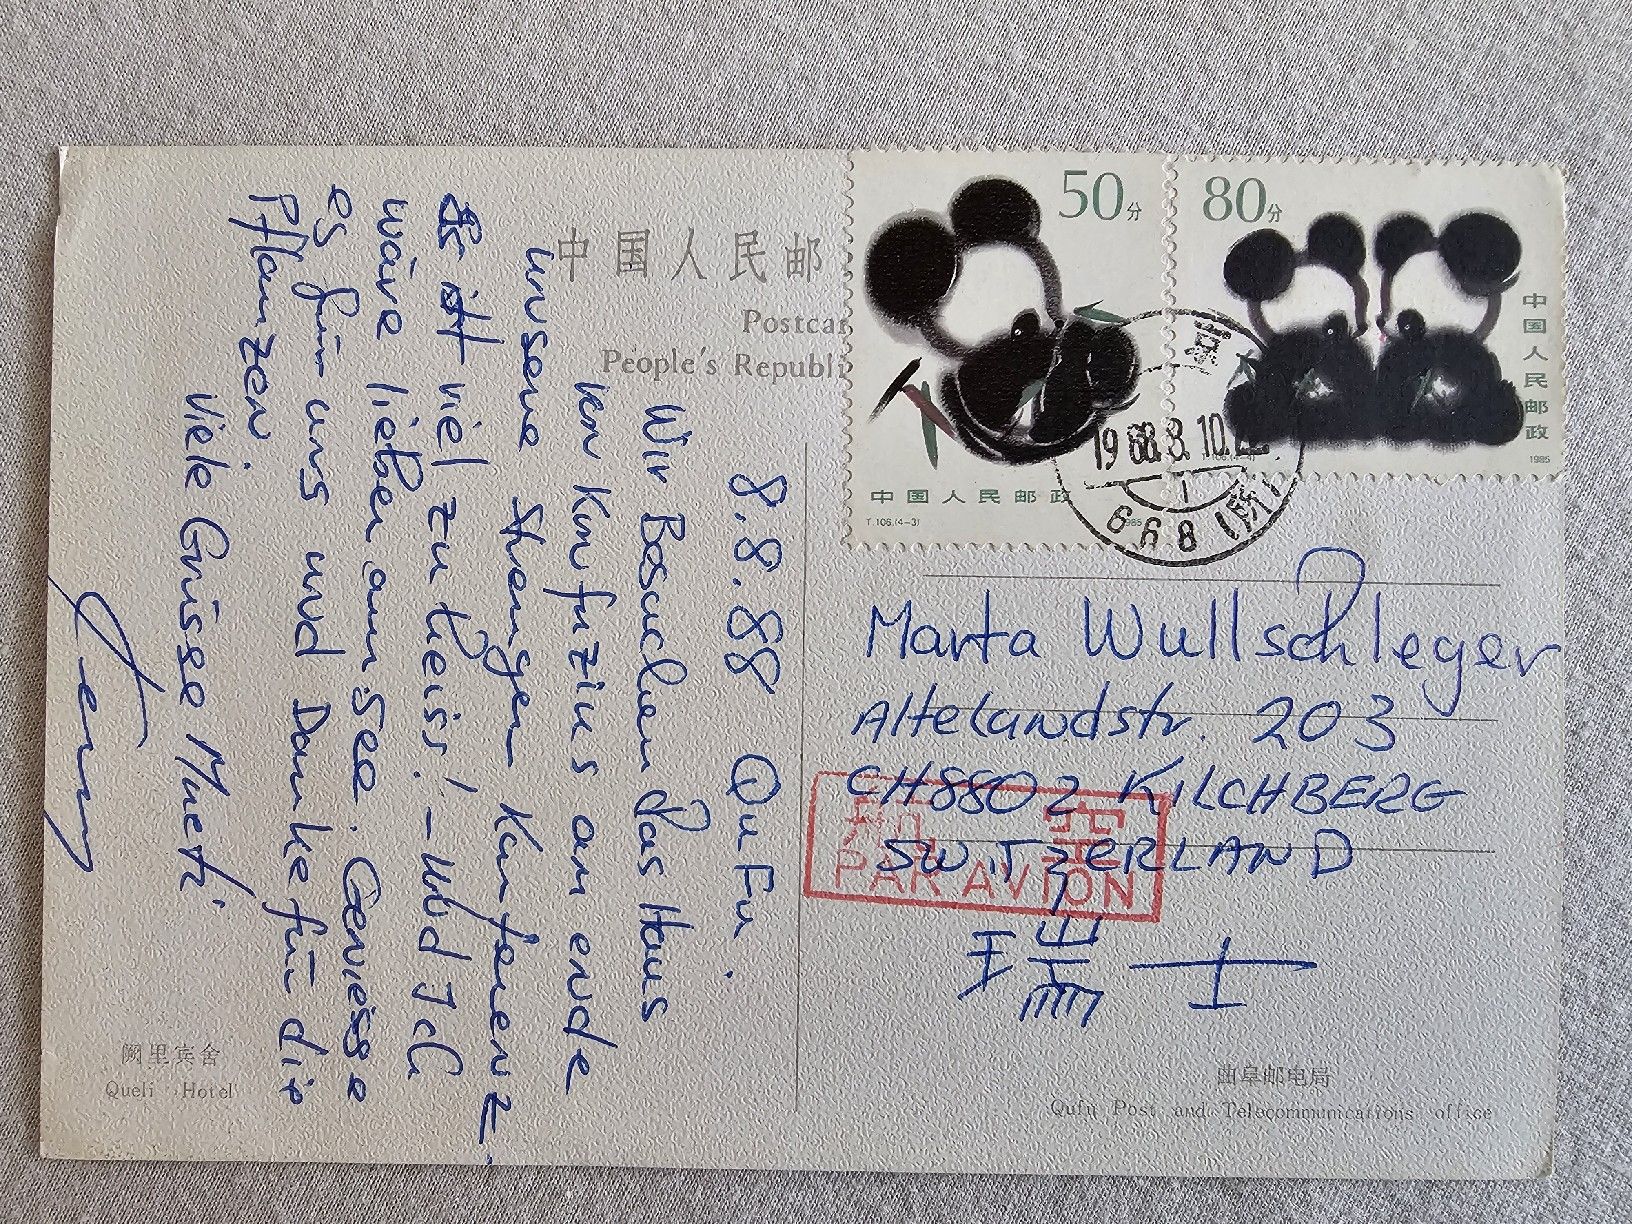 中国人民邮
Postcar
People's Republi
8.8.88 QuFu.
Wir Besuchen das Haus
von Konfuzius am ende
unserer strengen Konferenz
Es ist viel zu heiss! - Und Ich
wäre lieber am See. Geniesse
es für uns und Danke für die
Pflanzen
Viele Grüsse Mueti
阙里宾舍
Queli Hotel
50分
中国人民邮政
T.106.(4-3)
1985
80分
中国人民邮政
T.106.(4-4)
1985
京
19 88.8.10.
668
Marta Wullschleger
Altelandstr. 203
CH 8802 KILCHBERG
SWITZERLAND
航空
PAR AVION
瑞士
曲阜邮电局
Qufu Post and Telecommunications office